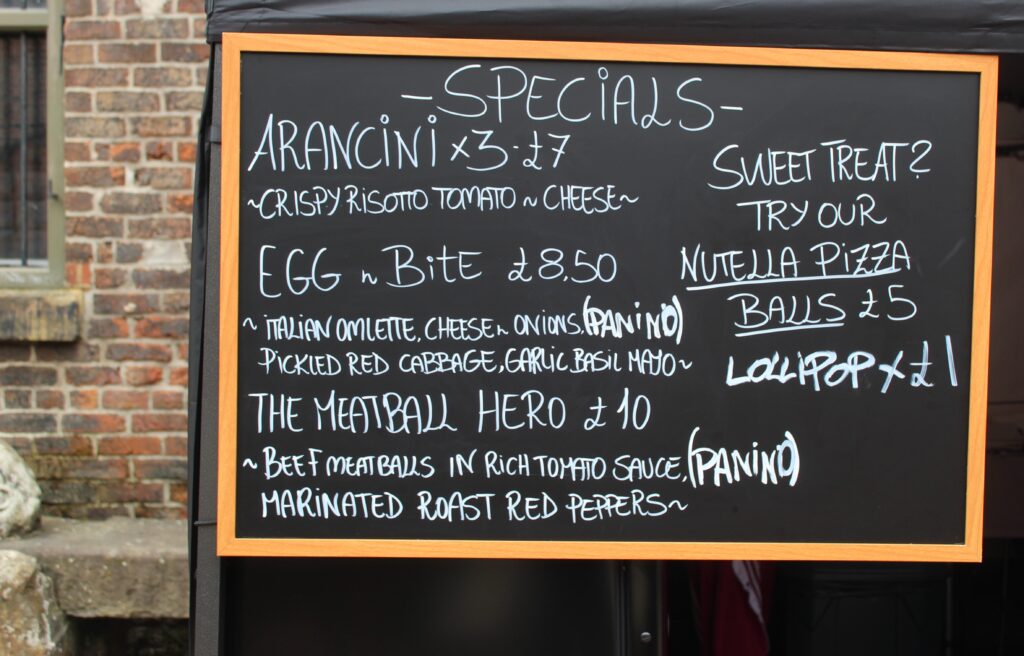 -SPECIALS-
ARANCINI x3 - £7
~CRISPY RISOTTO TOMATO n CHEESE~
EGG n BITE £8.50
~ ITALIAN OMLETTE, CHEESE n ONIONS, (PANINO)
PICKLED RED CABBAGE, GARLIC BASIL MAYO~
THE MEATBALL HERO £10
~ BEEF MEATBALLS IN RICH TOMATO SAUCE, (PANINO)
MARINATED ROAST RED PEPPERS~
SWEET TREAT?
TRY OUR
NUTELLA PIZZA
BALLS £5
LOLLIPOP x £1